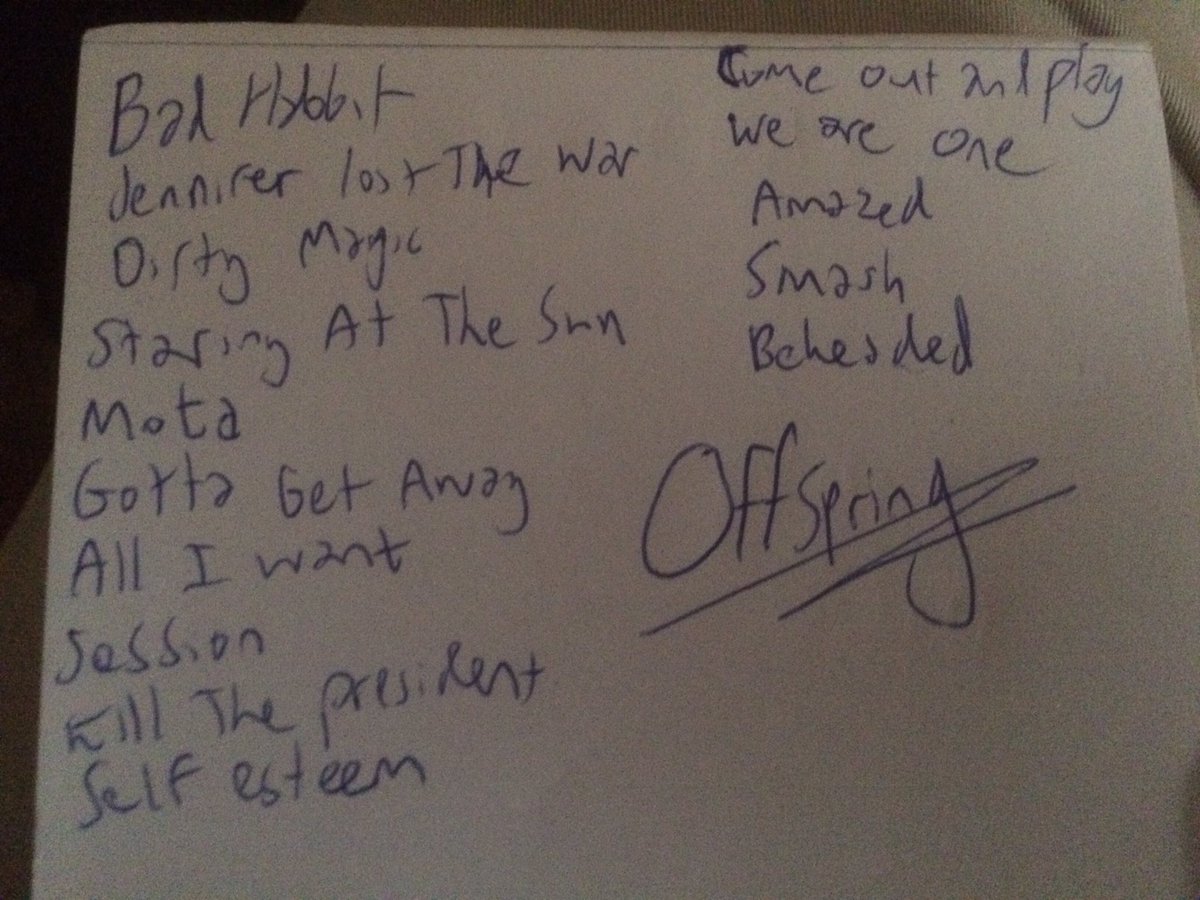 Bad Habbit
Jennifer lost The War
Dirty Magic
Staring At The Sun
Mota
Gotta Get Away
All I want
Session
Kill The president
Self esteem
Come out and play
We are one
Amazed
Smash
Beheaded
Offspring